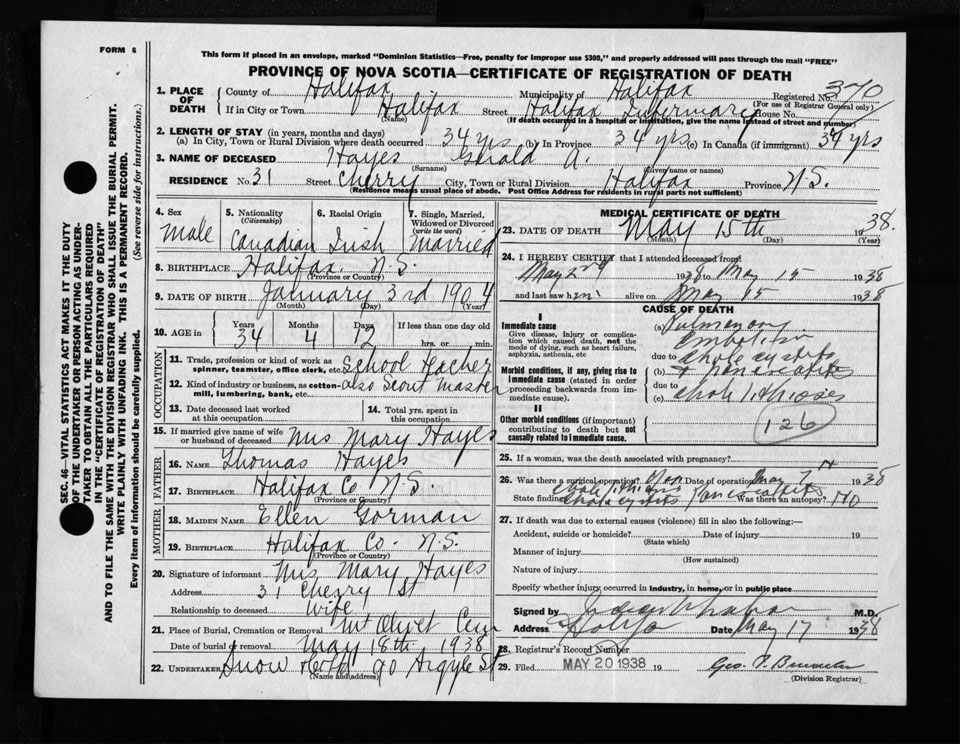 FORM 6
This form if placed in an envelope, marked "Dominion Statistics—Free, penalty for improper use $300," and properly addressed will pass through the mail "FREE"
PROVINCE OF NOVA SCOTIA—CERTIFICATE OF REGISTRATION OF DEATH
SEC. 46—VITAL STATISTICS ACT MAKES IT THE DUTY
OF THE UNDERTAKER OR PERSON ACTING AS UNDER-
TAKER TO OBTAIN ALL THE PARTICULARS REQUIRED
IN THE "CERTIFICATE OF REGISTRATION OF DEATH"
AND TO FILE THE SAME WITH THE DIVISION REGISTRAR WHO SHALL ISSUE THE BURIAL PERMIT.
WRITE PLAINLY WITH UNFADING INK. THIS IS A PERMANENT RECORD.
Every item of information should be carefully supplied. (See reverse side for instructions.)
1. PLACE OF DEATH County of Halifax Municipality of Halifax Registered No. 370
(For use of Registrar General only)
If in City or Town Halifax Street Halifax Infirmary House No.
(Name) (If death occurred in a hospital or institution, give the name instead of street and number)
2. LENGTH OF STAY (in years, months and days)
(a) In City, Town or Rural Division where death occurred 34 yrs (b) In Province 34 yrs (c) In Canada (if immigrant) 34 yrs
3. NAME OF DECEASED Hayes Gerald A.
(Surname) (Given name or names)
RESIDENCE No. 31 Street Cherry City, Town or Rural Division Halifax Province N.S.
(Residence means usual place of abode. Post Office Address for residents in rural parts not sufficient)
4. Sex Male
5. Nationality (Citizenship) Canadian
6. Racial Origin Irish
7. Single, Married, Widowed or Divorced (write the word) Married
8. BIRTHPLACE Halifax N.S.
(Province or Country)
9. DATE OF BIRTH January 3rd 1904
(Month) (Day) (Year)
10. AGE in Years 34 Months 4 Days 12 If less than one day old
hrs. or min.
OCCUPATION
11. Trade, profession or kind of work as spinner, teamster, office clerk, etc. School Teacher
12. Kind of industry or business, as cotton-mill, lumbering, bank, etc. also Scout Master
13. Date deceased last worked at this occupation
14. Total yrs. spent in this occupation
15. If married give name of wife or husband of deceased Mrs Mary Hayes
FATHER
16. NAME Thomas Hayes
17. BIRTHPLACE Halifax Co N.S.
(Province or Country)
MOTHER
18. MAIDEN NAME Ellen Gorman
19. BIRTHPLACE Halifax Co. N.S.
(Province or Country)
20. Signature of informant Mrs Mary Hayes
Address 31 Cherry St
Relationship to deceased Wife
21. Place of Burial, Cremation or Removal Mt Olivet Cem
Date of burial or removal May 18th 1938
22. UNDERTAKER Snow &amp; Co Ltd 90 Argyle St
(Name and address)
MEDICAL CERTIFICATE OF DEATH
23. DATE OF DEATH May 15th 1938.
(Month) (Day) (Year)
24. I HEREBY CERTIFY that I attended deceased from:
May 2nd 1938 to May 15 1938
and last saw him alive on May 15 1938
CAUSE OF DEATH
I
Immediate cause
Give disease, injury or complication which caused death, not the mode of dying, such as heart failure, asphyxia, asthenia, etc
(a) Pulmonary embolism
due to
Morbid conditions, if any, giving rise to immediate cause (stated in order proceeding backwards from immediate cause).
(b) Cholecystitis + pancreatitis
due to
(c) cholelithiasis
II
Other morbid conditions (if important) contributing to death but not causally related to immediate cause.
126
25. If a woman, was the death associated with pregnancy?
26. Was there a surgical operation? Date of operation May 7th 1938
State findings cholelithiasis cholecystitis pancreatitis Was there an autopsy? No
27. If death was due to external causes (violence) fill in also the following:—
Accident, suicide or homicide? Date of injury 19
(State which)
Manner of injury
(How sustained)
Nature of injury
Specify whether injury occurred in industry, in home, or in public place
Signed by M.D.
Address Halifax Date May 17 1938
28. Registrar's Record Number
29. Filed MAY 20 1938 19 Geo.
(Division Registrar)